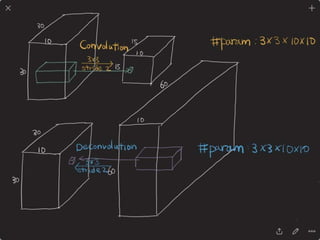 30
10
30
Convolution
3x3
stride 2
15
10
15
#param : 3x3x10x10
60
10
30
10
30
Deconvolution
3x3
stride 2
60
#param : 3x3x10x10